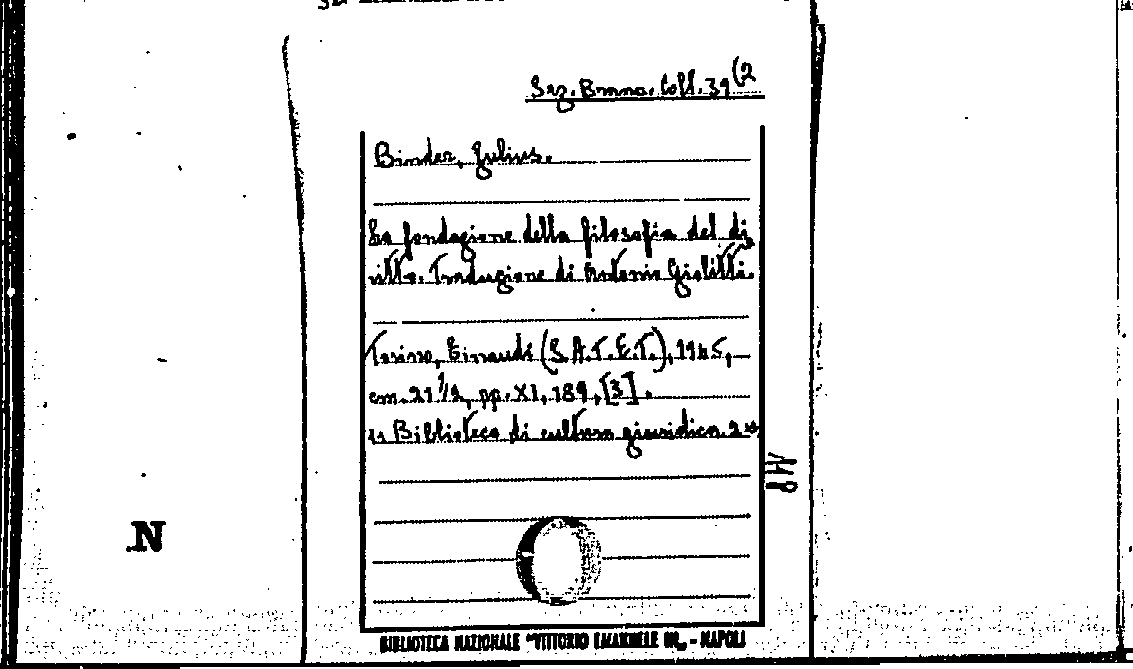 Sez. Branc. Coll. 39 (2
Binder, Julius.
La fondazione della filosofia del di
ritto. Traduzione di Antonio Giolitti.
Torino, Einaudi (S.A.T.E.T.), 1945,
cm. 21 1/2, pp. XI, 189, [3].
« Biblioteca di cultura giuridica. 2 »
N
BIBLIOTECA NAZIONALE "VITTORIO EMANUELE III„ - NAPOLI